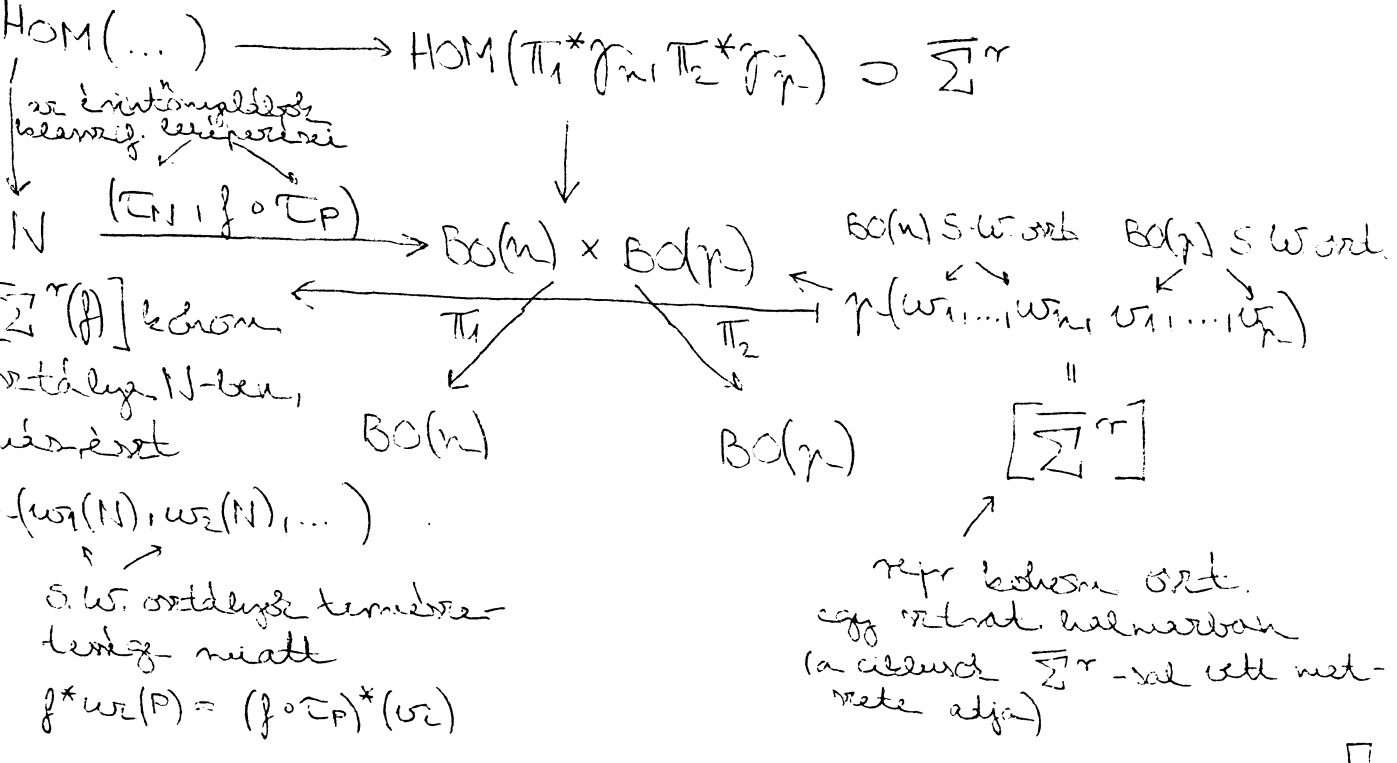 HOM(...) → HOM(π₁*γₙ, π₂*γₚ) ⊃ Σ̅ʳ
az érintőnyalábok
klasszif. leképezései
N (τ_N, f∘τ_P) → BO(n) × BO(p)
BO(n) S-W oszt. BO(p) S W oszt.
p(w₁,...,wₙ, v₁,...,vₚ)
Σ̅ʳ(f)] kohom
osztálya N-ben,
másrészt
π₁ π₂
BO(n) BO(p)
=
[Σ̅ʳ]
(w₁(N), w₂(N), ...)
S.W. osztályok természe-
tesség miatt
f*wᵢ(P) = (f∘τ_P)*(vᵢ)
repr kohom oszt.
egy halmazban
(a ciklusok Σ̅ʳ-sal vett met-
szete adja)
□